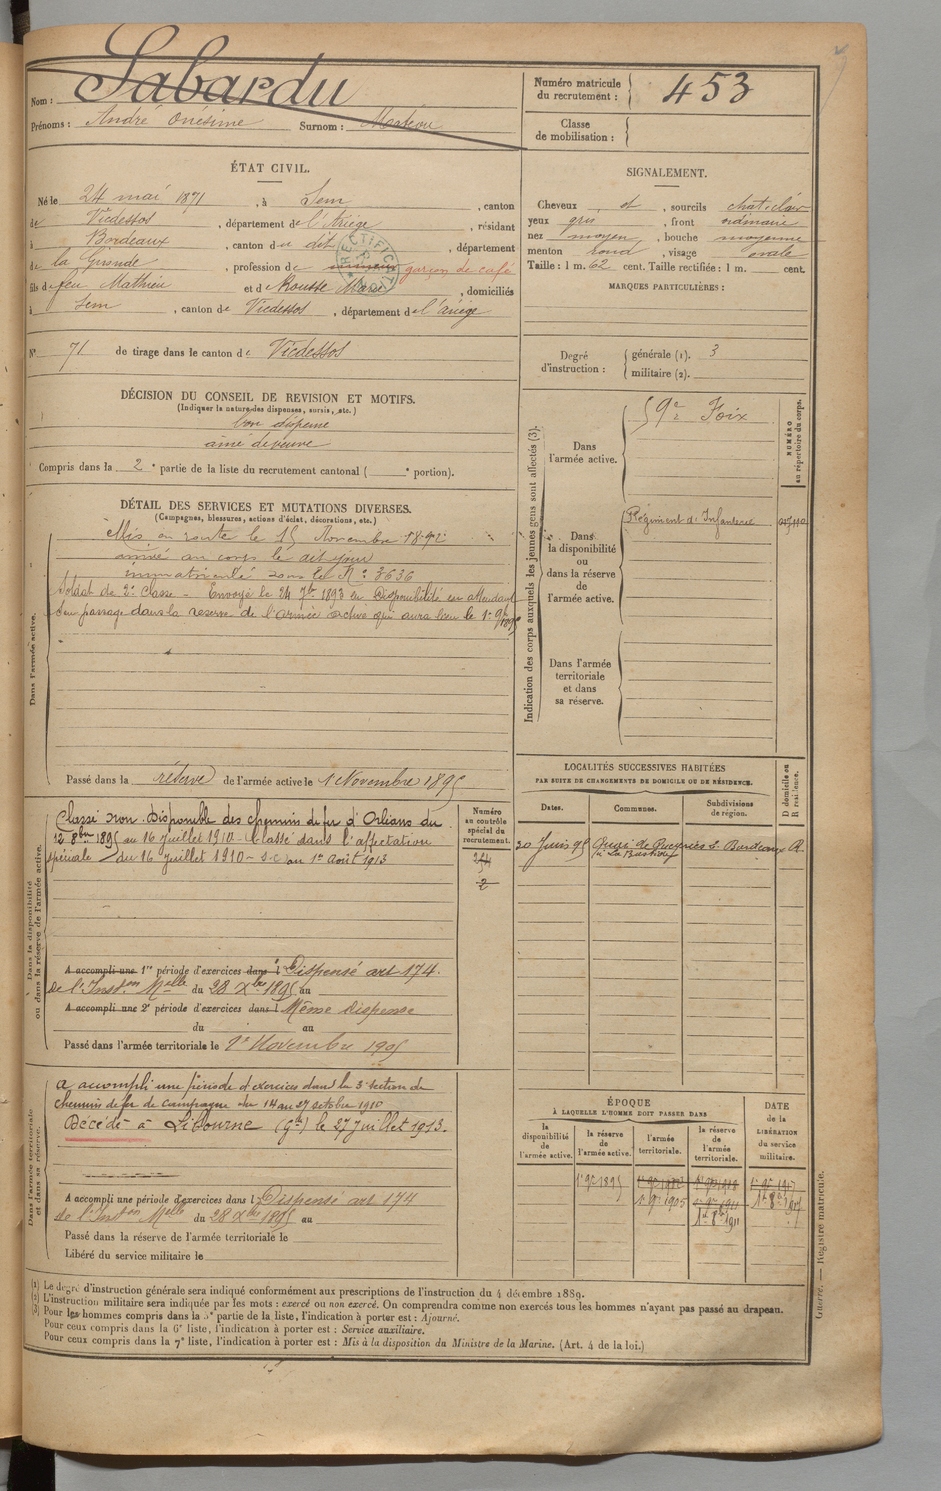 Nom : Sabardu
Prénoms : André Onésime Surnom :
Numéro matricule du recrutement : 453
Classe de mobilisation :
ÉTAT CIVIL.
Né le 24 mai 1871, à Sem, canton
de Vicdessos, département de l'Ariège, résidant
à Bordeaux, canton du dit, département
de la Gironde, profession de garçon de café
fils de feu Mathieu et de Rousse Marie, domiciliés
à Sem, canton de Vicdessos, département de l'Ariège
N° 71 de tirage dans le canton de Vicdessos
SIGNALEMENT.
Cheveux et, sourcils chat. clair
yeux gris, front ordinaire
nez moyen, bouche moyenne
menton rond, visage ovale
Taille : 1 m. 62 cent. Taille rectifiée : 1 m. cent.
MARQUES PARTICULIÈRES :
Degré d'instruction : générale (1). 3
militaire (2).
DÉCISION DU CONSEIL DE REVISION ET MOTIFS.
(Indiquer la nature des dispenses, sursis, etc.)
bon dispensé
aîné de veuve
Compris dans la 2e partie de la liste du recrutement cantonal ( e portion).
DÉTAIL DES SERVICES ET MUTATIONS DIVERSES.
(Campagnes, blessures, actions d'éclat, décorations, etc.)
Dans l'armée active.
Mis en route le 15 Novembre 1892
arrivé au corps le dit jour
immatriculé sous le N° 3636
Soldat de 2e Classe - Envoyé le 24 7bre 1893 en Disponibilité en attendant
son passage dans la réserve de l'armée active qui aura lieu le 1er 9bre 1895
Passé dans la réserve de l'armée active le 1 Novembre 1895
Indication des corps auxquels les jeunes gens sont affectés (3).
NUMÉRO au répertoire du corps.
Dans l'armée active.
59e Foix
Dans la disponibilité ou dans la réserve de l'armée active.
Régiment d'Infanterie
Dans l'armée territoriale et dans sa réserve.
LOCALITÉS SUCCESSIVES HABITÉES
PAR SUITE DE CHANGEMENTS DE DOMICILE OU DE RÉSIDENCE.
Dates. Communes. Subdivisions de région. D domicile ou R résidence.
20 Juin 95 Quai de Queyries 2 Bordeaux R.
à La Bastide
Dans la disponibilité ou dans la réserve de l'armée active.
Numéro au contrôle spécial du recrutement.
Classé non Disponible des chemins de fer d'Orléans du
12 8bre 1895 au 16 Juillet 1910 - Classé dans l'affectation
spéciale du 16 Juillet 1910 - s.c au 1er Août 1913
2
A accompli une 1re période d'exercices dans l Dispensé art 174.
de l'Inston Melle du 28 Xbre 1895 au
A accompli une 2e période d'exercices dans l Même dispense
du au
Passé dans l'armée territoriale le 1er Novembre 1905
Dans l'armée territoriale et dans sa réserve.
A accompli une période d'exercices dans la 3e section de
chemins de fer de campagne du 14 au 27 octobre 1910
Décédé à Libourne (Gde) le 27 Juillet 1913.
A accompli une période d'exercices dans l Dispensé art 174
de l'Inston Melle du 28 Xbre 1895 au
Passé dans la réserve de l'armée territoriale le
Libéré du service militaire le
ÉPOQUE
À LAQUELLE L'HOMME DOIT PASSER DANS
la disponibilité de l'armée active. la réserve de l'armée active. l'armée territoriale. la réserve de l'armée territoriale.
DATE de la LIBÉRATION du service militaire.
1er 9bre 1895 1er 9bre 1917
1er 9bre 1905 1er 9bre 1911
1er 8bre 1911
Guerre. — Registre matricule.
(1) Le degré d'instruction générale sera indiqué conformément aux prescriptions de l'instruction du 4 décembre 1889.
(2) L'instruction militaire sera indiquée par les mots : exercé ou non exercé. On comprendra comme non exercés tous les hommes n'ayant pas passé au drapeau.
(3) Pour les hommes compris dans la 5e partie de la liste, l'indication à porter est : Ajourné.
Pour ceux compris dans la 6e liste, l'indication à porter est : Service auxiliaire.
Pour ceux compris dans la 7e liste, l'indication à porter est : Mis à la disposition du Ministre de la Marine. (Art. 4 de la loi.)